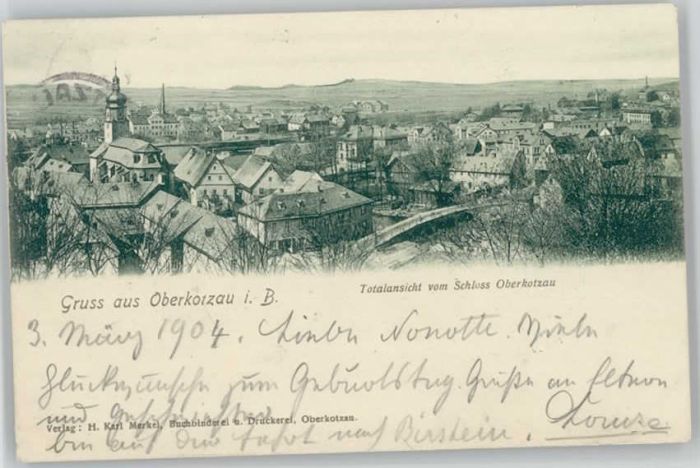 Totalansicht vom Schloss Oberkotzau
Gruss aus Oberkotzau i. B.
3. März 1904. Liebe Nonotte. Viele
Glückwünsche zum Geburtstag. Grüße an Eltern
und Geschwister
Verlag: H. Karl Merkel, Buchbinderei u. Druckerei, Oberkotzau.
bin auf der Fahrt nach Birstein.